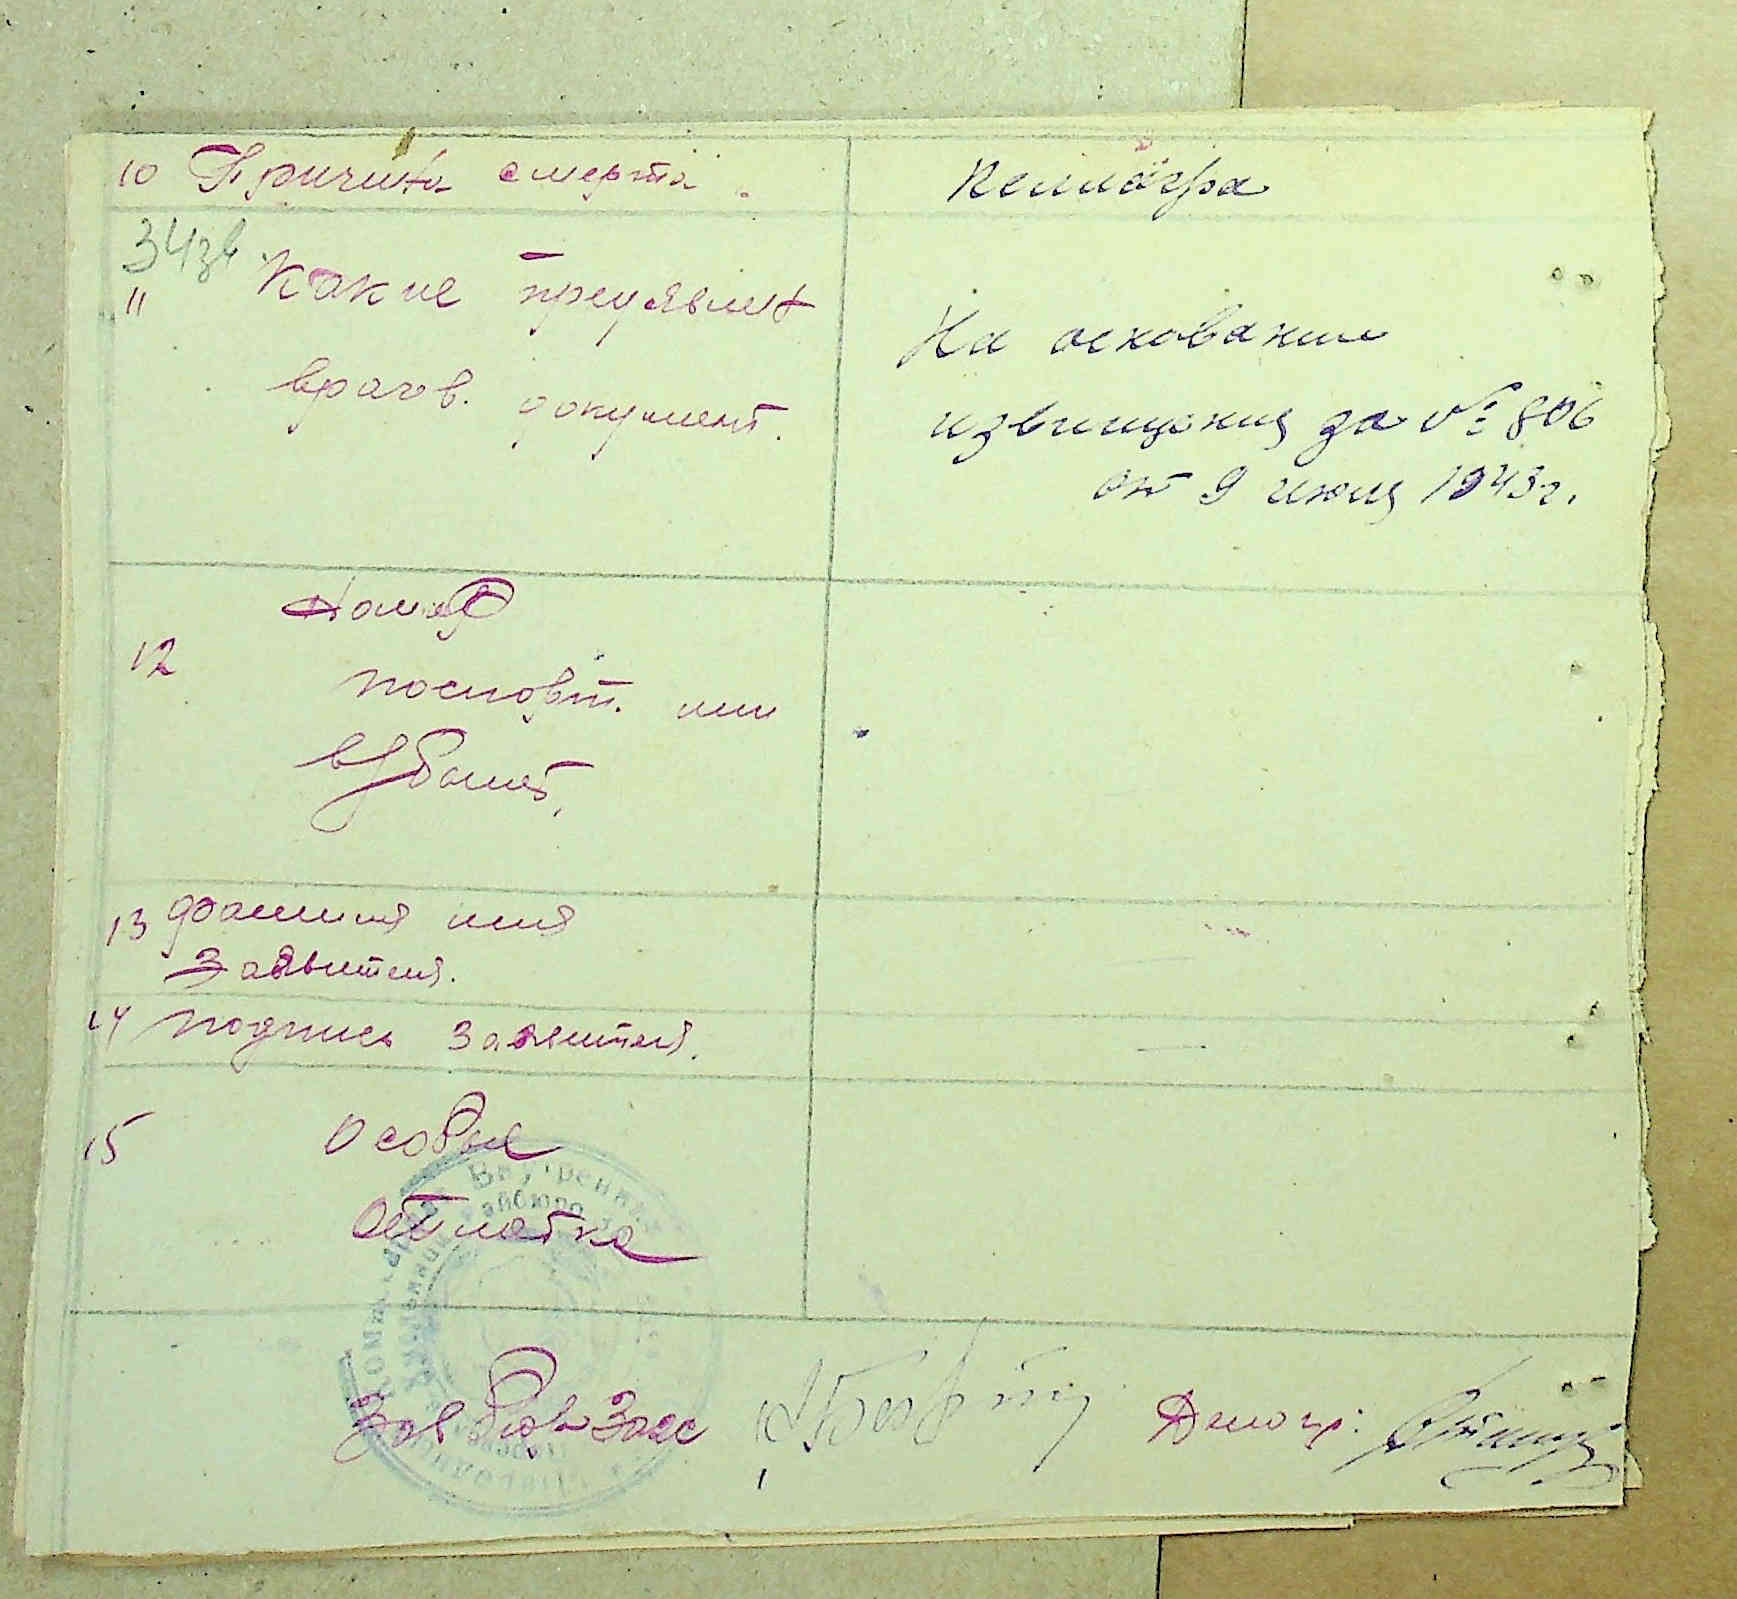 10 Причина смерти. Пеллагра
343в
11 Какие предъявлен
врачов. документ.
На основании
извещения за № 806
от 9 июня 1943 г.
Номер
12 паспорт. или
в/билет.
13 фамилия имя —
Заявителя.
14 подпись заявителя. —
15 Особые
Отметка
Зав бюро Загс Делопр.